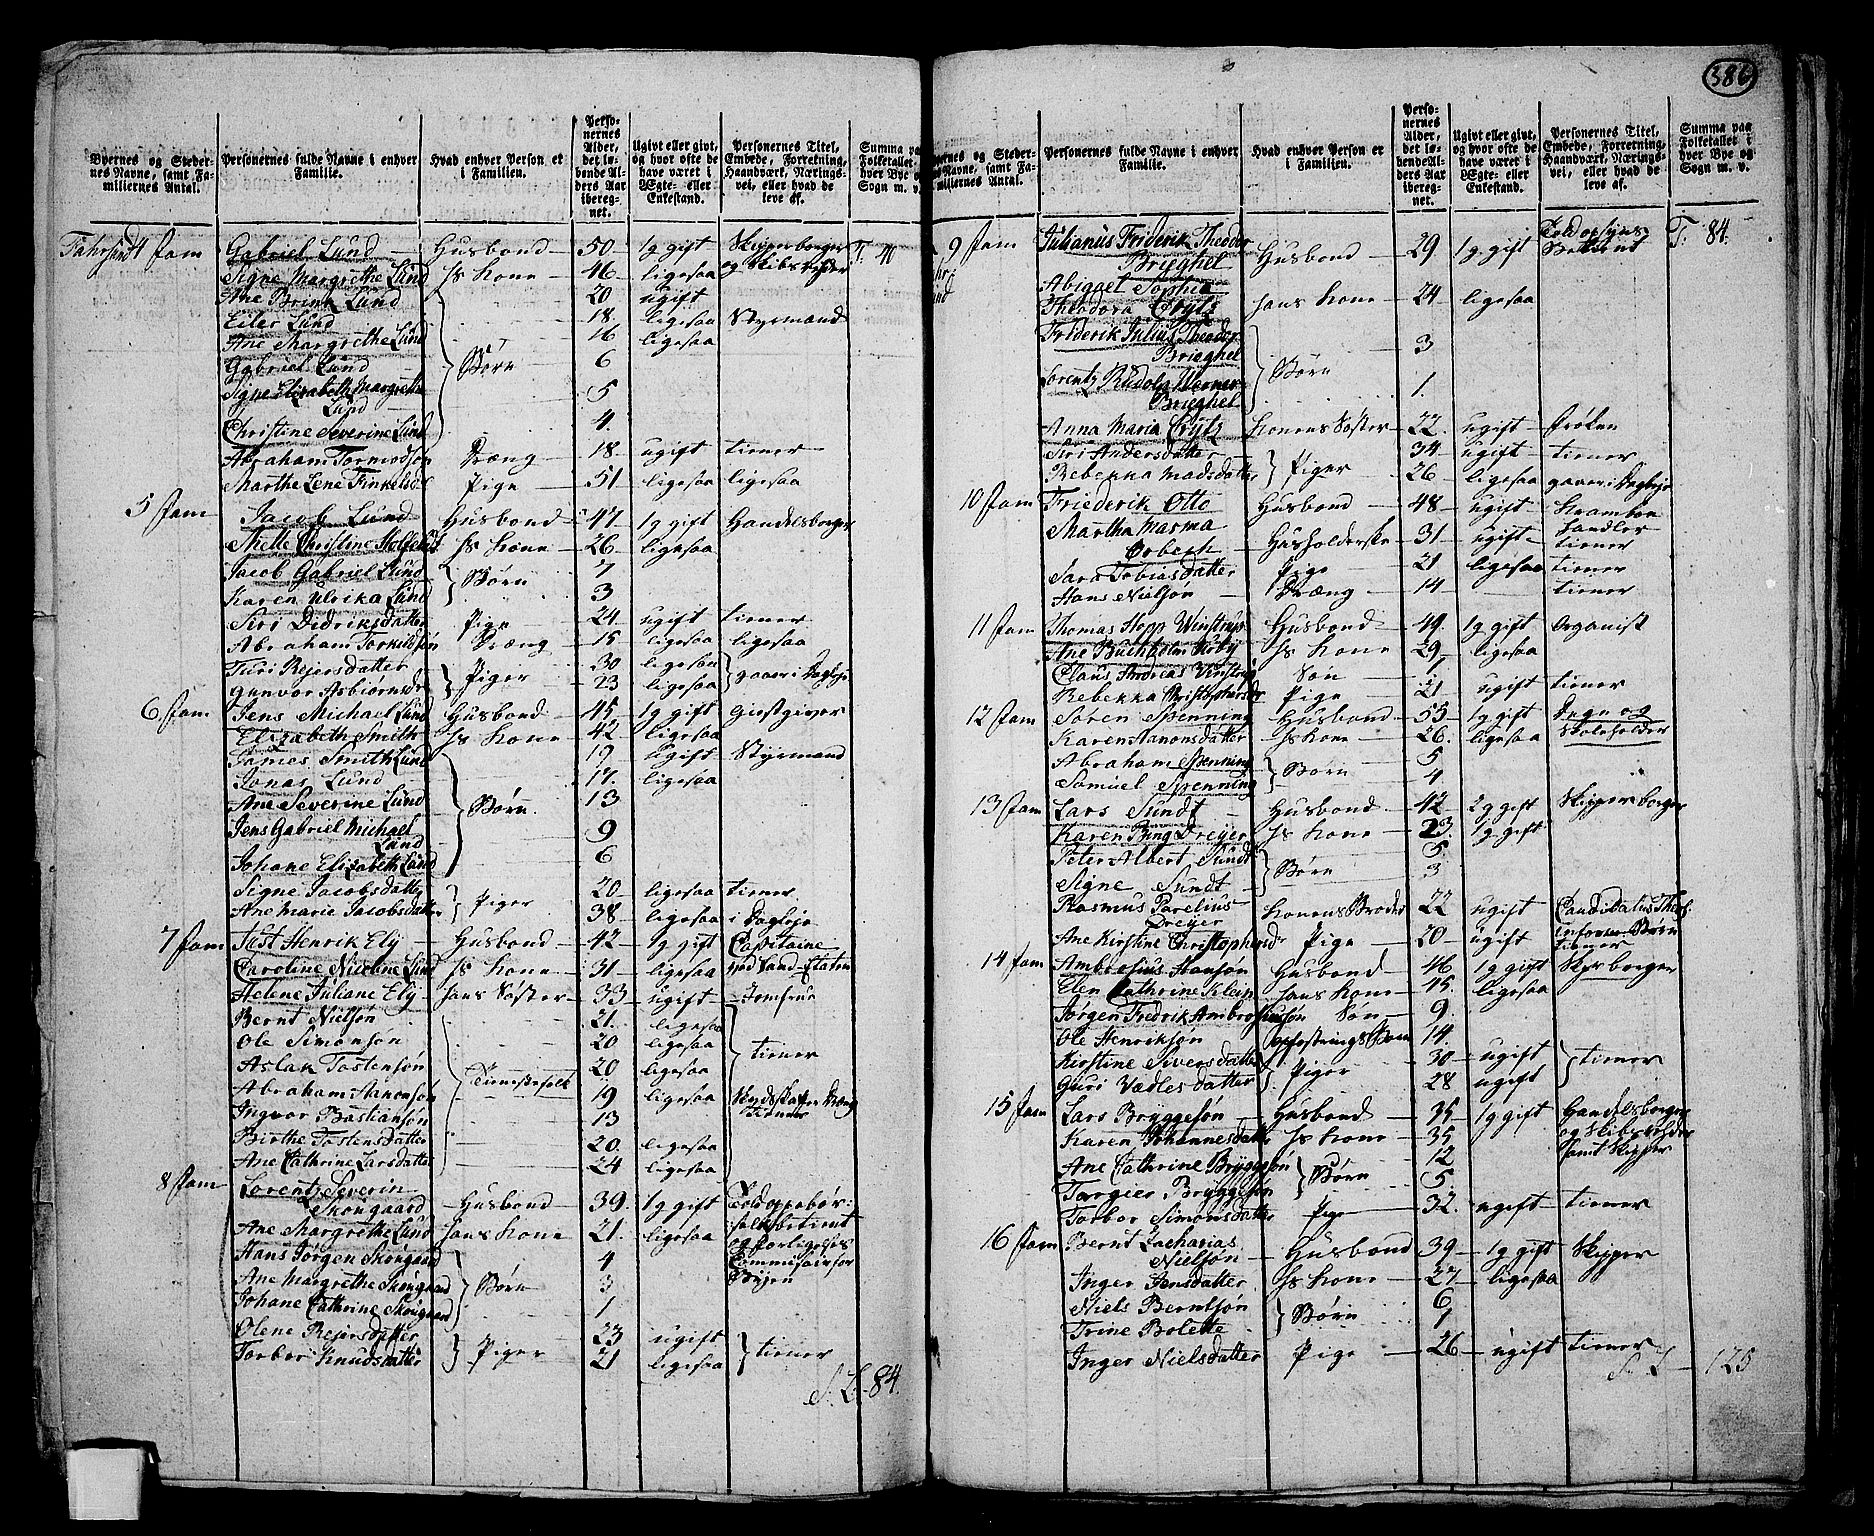 386
Byernes og Steder-
nes Navne, samt Fa-
miliernes Antal.
Personernes fulde Navne i enhver
Familie.
Hvad enhver Person er
i Familien.
Perso-
nernes
Alder,
det lø-
bende Al-
ders Aar
iberег-
net.
Ugivt eller givt,
og hvor ofte de
have været i
Ægte- eller
Enkestand.
Personernes Titel,
Embede, Forretning,
Haandværk, Nærings-
vei, eller hvad de
leve af.
Summa paa
Folketallet i
hver Bye og
Sogn m. v.
Fahrsund 4 fam Gabriel Lund Husbond 50 1 g gift Skipperborger T. 40
Signe Margrethe Lund hs Kone 46 ligesaa og Skibsrheder
Ane Brink Lund 20 ugift
Eiler Lund 18 ligesaa Styrmand
Ane Margrethe Lund 16 ligesaa
Gabriel Lund Børn 6
Signe Elizabeth Margrethe
Lund 5
Christine Severine Lund 4
Abraham Tormodsøn Dræng 18 ugift tiener
Marthe Lene Finkelsd Pige 51 ligesaa ligesaa
5 fam Jacob Lund Husbond 47 1 g gift Handelsborger
Mette Christine hs Kone 26 ligesaa
Jacob Gabriel Lund Børn 7
Karen Ulrika Lund 3
Siri Didriksdatter Pige 24 ugift tiener
Abraham Torkildsøn Dræng 15 ligesaa ligesaa
Turi Rejersdatter Piger 30 ligesaa gaaer i Dagleje
Gunvor Asbiørnsdr 23 ligesaa
6 fam Jens Michael Lund Husbond 45 1 g gift Giestgiver
Elizabeth Smith hs Kone 42 ligesaa
James Smith Lund 19 ugift Styrmand
Jonas Lund 17 ligesaa
Ane Severine Lund Børn 13
Jens Gabriel Michael
Lund 9
Johane Elizabeth Lund 6
Signe Jacobsdatter Piger 20 ligesaa tiener
Ane Marie Jacobsdatter 38 ligesaa i Dagleje
7 fam Just Henrik Ely Husbond 42 1 g gift Capitaine
Caroline Nicoline Lund hs Kone 31 ligesaa ved Land-Etaten
Helene Juliane Ely hans Søster 33 ugift Jomfrue
Bernt Nielsøn 21 ligesaa
Ole Simonsøn 20 ligesaa tiener
Aslak Tostensøn 20 ligesaa
Abraham Hanonsøn Tienestefolk 19 ligesaa Skydskaffer Dræng
Ingvor Bastiansøn 13 tiener
Birthe Tostensdatter 20 ligesaa
Ane Cathrine Larsdatter 24 ligesaa
8 fam Lorentz Severin
Skougaard Husbond 39 1 g gift Toldoppebør-
Ane Margrethe Lund hans Kone 21 ligesaa selsbetient
Hans Jørgen Skougaard 4 og forligelses
Ane Margrethe Skougaard Børn 3 Commissair for
Johane Cathrine Skougaard 1 Byen
Olene Rejersdatter Piger 23 ugift tiener
Torbor Knudsdatter 21 ligesaa
S. L. 84
Byernes og Steder-
nes Navne, samt Fa-
miliernes Antal.
Personernes fulde Navne i enhver
Familie.
Hvad enhver Person er
i Familien.
Perso-
nernes
Alder,
det lø-
bende Al-
ders Aar
ibereg-
net.
Ugivt eller givt,
og hvor ofte de
have været i
Ægte- eller
Enkestand.
Personernes Titel,
Embede, Forretning,
Haandværk, Nærings-
vei, eller hvad de
leve af.
Summa paa
Folketallet i
hver Bye og
Sogn m. v.
9 fam Julianus Friderik Theodor Toldopsyns T. 84
Brieghel Husbond 29 1 g gift Betient
Abigael Sophia
Theodora Crytz hans Kone 24 ligesaa
Friderik Julius Theodor
Brieghel 3
Lorentz Rudolp Werner Børn
Brieghel 1
Anna Maria Crytz Konens Søster 22 ugift frøken
Siri Andersdatter Piger 34 ugift tiener
Rebekka Madsdatter 26 ligesaa gaaer i Dagleje
10 fam Friederik Otto Husbond 48 ugift Krambo
Martha Masma handler
Orbech Husholderske 31 ugift tiener
Sara Tobiasdatter Pige 21 ligesaa tiener
Hans Nielsøn Dræng 14 tiener
11 fam Thomas Hopp Winstrup Husbond 49 1 g gift Organist
Ane Buchholm hs Kone 29 ligesaa
Claus Andreas Winstrup Søn 1
Rebekka Christophersdr Pige 21 ugift tiener
12 fam Søren Spenning Husbond 53 1 g gift Degn og
Karen Hanonsdatter hs Kone 26 ligesaa Skoleholder
Abraham Spenning Børn 5
Samuel Spenning 4
13 fam Lars Sundt Husbond 42 2 g gift Skipperborger
Karen Bing Dreyer hs Kone 23 1 g gift
Peter Albert Sundt Børn 5
Signe Sundt 3
Rasmus Parelius
Dreyer Konens Broder 22 ugift Candidatus Theol.
Ane Kirstine Christophersdr Pige 20 ugift tiener
14 fam Ambrosius Hansøn Husbond 46 1 g gift Skipborger
Elen Cathrine Klep hans Kone 45 ligesaa
Jørgen Fredrik Ambrosiussøn Søn 9
Ole Henriksøn opfostrings Barn 14
Kirstine Siversdatter Piger 30 ugift tiener
Guri Vædlesdatter 28 ugift
15 fam Lars Bryggesøn Husbond 35 1 g gift Handelsborger
Karen Johannesdatter hs Kone 35 og Skibsrheder
Ane Cathrine Bryggesøn Børn 12 samt Skipper
Torgier Bryggesøn 5
Torbor Simonsdatter Pige 32 ugift tiener
16 fam Bernt Zacharias
Nielsøn Husbond 39 1 g gift Skipper
Inger Jensdatter hs Kone 27 ligesaa
Niels Berntsøn Børn 6
Trine Bolette 1
Inger Nielsdatter Pige 26 ugift tiener
S. L. 125